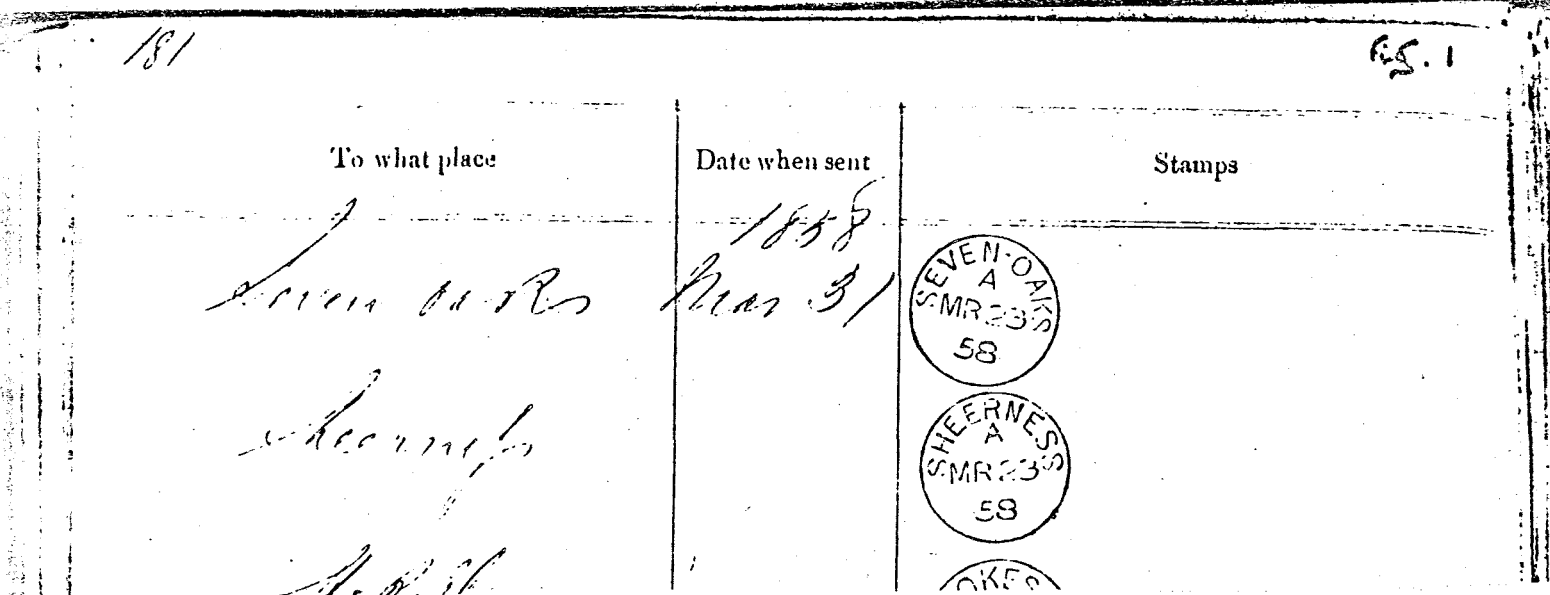 181
Fig. 1
To what place
Date when sent
Stamps
1858
Seven oaks
Mar 31
SEVEN-OAKS
A
MR 23
58
Sheerness
SHEERNESS
A
MR 23
58
OKES